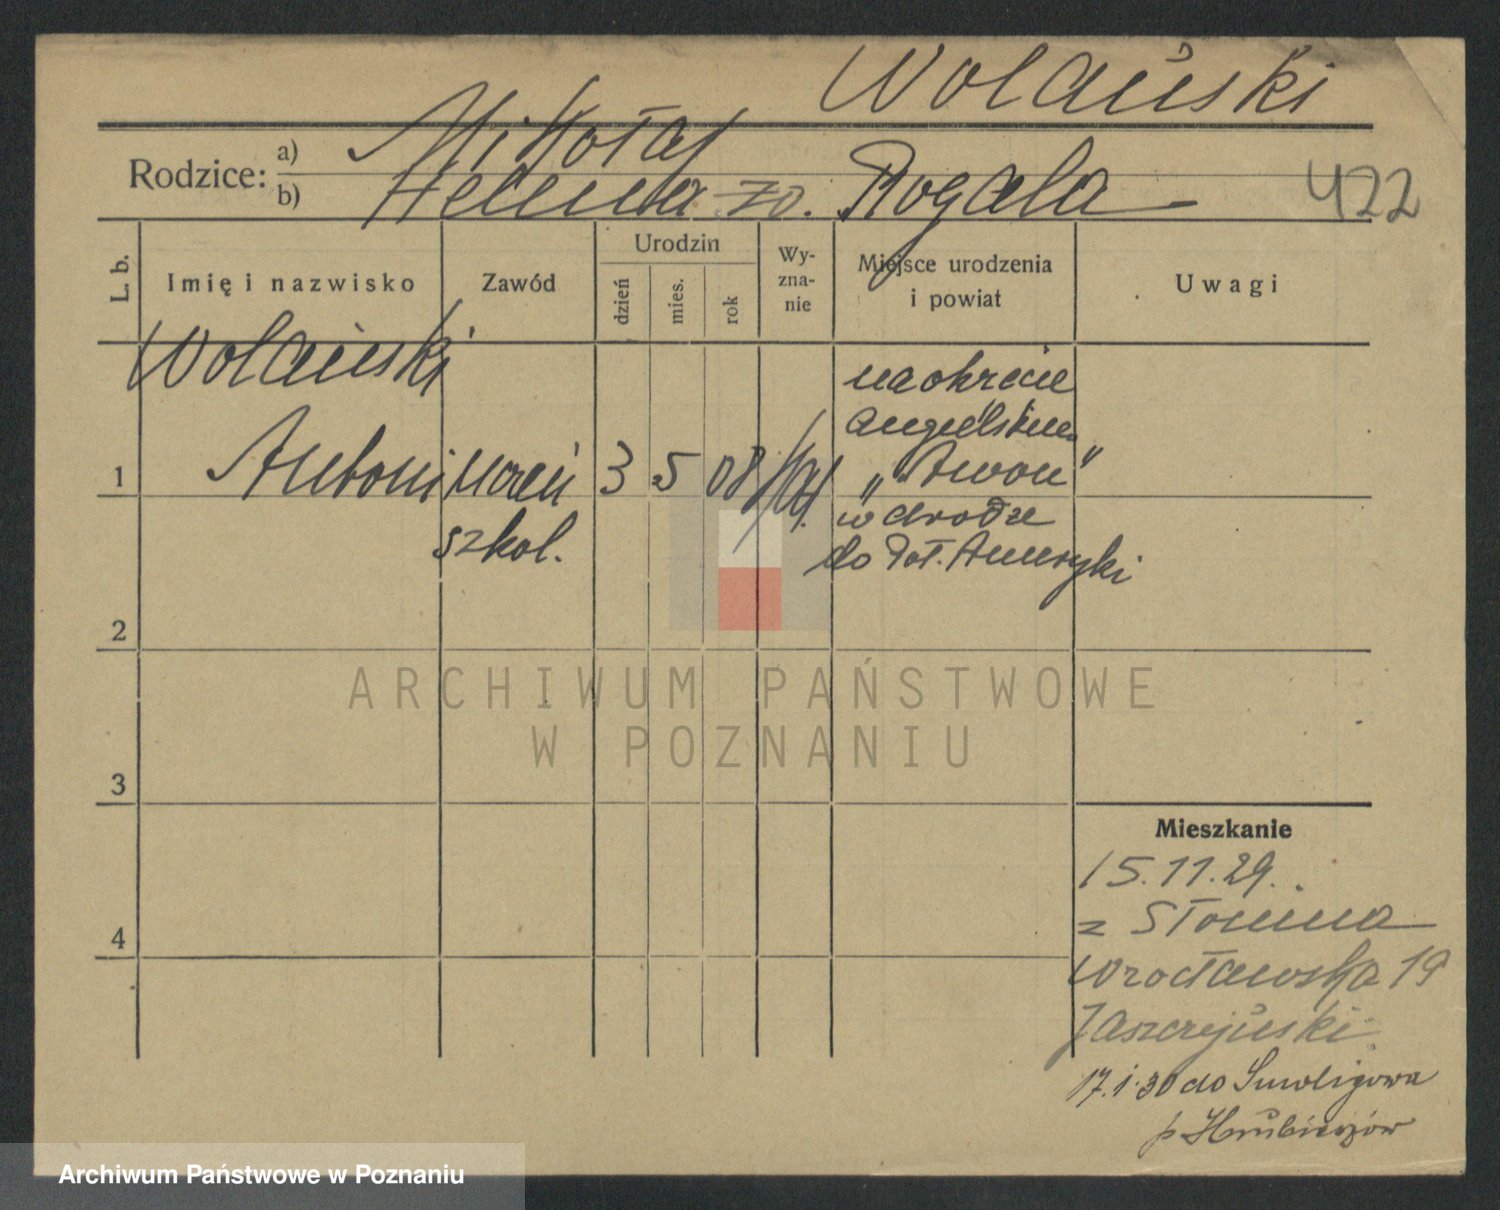 Wolański
Rodzice: a) Mikołaj
b) Helena zd. Rogala 422
L. b. Imię i nazwisko Zawód Urodzin dzień mies. rok Wy-zna-nie Miejsce urodzenia i powiat Uwagi
Wolański
1 Antoni uczeń 3 5 08
szkol.
na okręcie
angielskim
„Avon”
w drodze
do Poł. Ameryki
2
3
4
Mieszkanie
15.11.29.
z Słonima
Wrocławska 19
17.1.30 do Smoligowa
p Hrubieszów
ARCHIWUM PAŃSTWOWE
W POZNANIU
Archiwum Państwowe w Poznaniu